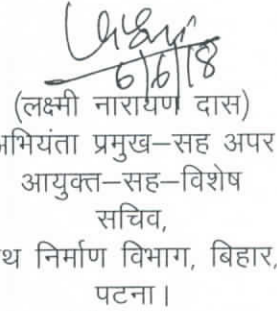 6/6/18
(लक्ष्मी नारायण दास)
भियंता प्रमुख–सह अपर
आयुक्त–सह–विशेष
सचिव,
थ निर्माण विभाग, बिहार,
पटना।